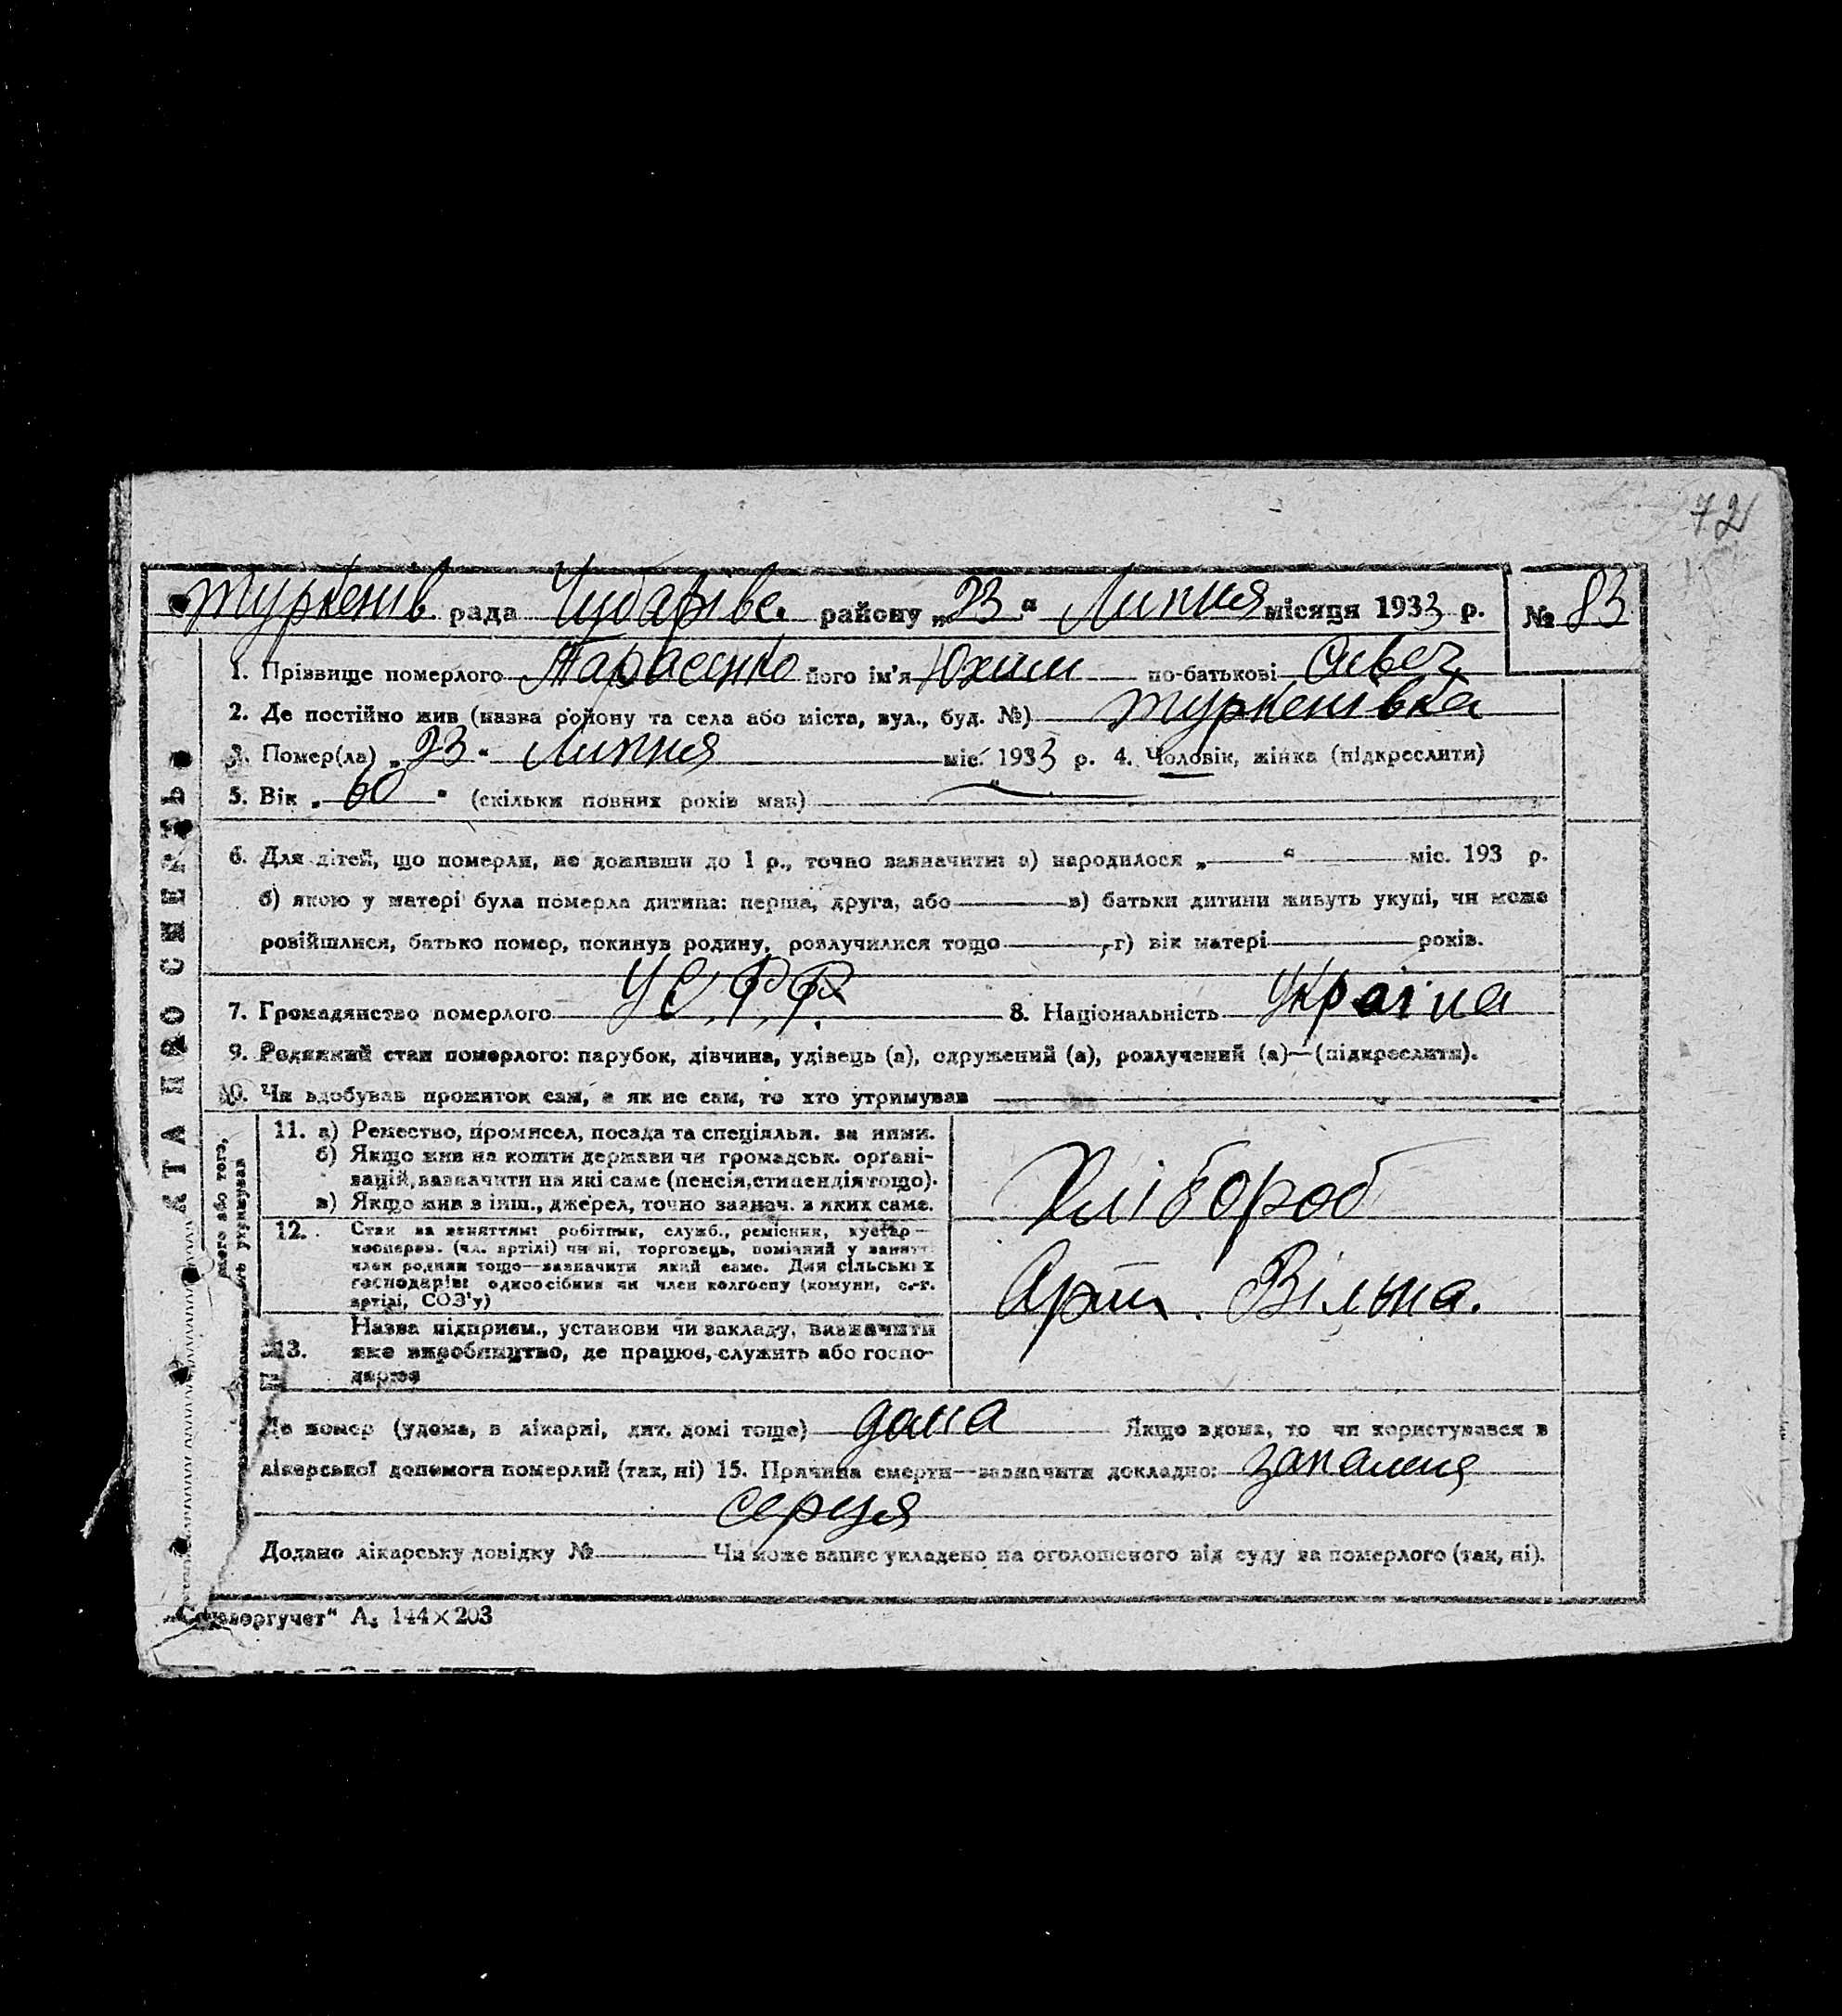 72
Туркенів. рада Чубарівс. району „23“ Липня місяця 1933 р. № 83
КАРТА ПРО СМЕРТЬ
1. Прізвище померлого Тарасенко його ім'я Юхим по-батькові
2. Де постійно жив (назва району та села або міста, вул., буд. №) Туркенівка
3. Помер(ла) „23“ Липня міс. 1933 р. 4. Чоловік, жінка (підкреслити)
5. Вік „60“ (скільки повних років мав)
6. Для дітей, що померли, не доживши до 1 р., точно зазначити: а) народилося „ “ міс. 193 р.
б) якою у матері була померла дитина: перша, друга, або в) батьки дитини живуть укупі, чи може
розійшлися, батько помер, покинув родину, розлучилися тощо г) вік матері років.
7. Громадянство померлого УСРР. 8. Національність Україна
9. Родинний стан померлого: парубок, дівчина, удівець (а), одружений (а), розлучений (а)—(підкреслити).
10. Чи здобував прожиток сам, а як не сам, то хто утримував
11. а) Ремество, промисел, посада та спеціяльн. за ними.
б) Якщо жив на кошти держави чи громадськ. організацій, зазначити на які саме (пенсія, стипендія тощо).
в) Якщо жив з інш., джерел, точно зазнач. з яких саме.
Хлібороб
12. Стан за заняттям: робітник, служб., ремісник, кустар—
кооперов. (чл. артілі) чи ні, торговець, помічний у занятт.
член родини тощо—зазначити який саме. Для сільських
господарів: одноосібник чи член колгоспу (комуни, с.-г.
артілі, СОЗ'у)
Артіл. Вільна.
Назва підприєм., установи чи закладу, визначити
13. яке виробництво, де працює, служить або господарює
його або того,
утримував
Де помер (удома, в лікарні, дит. домі тоще) дома Якщо вдома, то чи користувався з
лікарської допомоги померлий (так, ні) 15. Причина смерти—зазначити докладно: запаленя
серця
Додано лікарську довідку № Чи може запис укладено на оголошеного від суду за померлого (так, ні).
„Союзоргучет“ А₅ 144×203